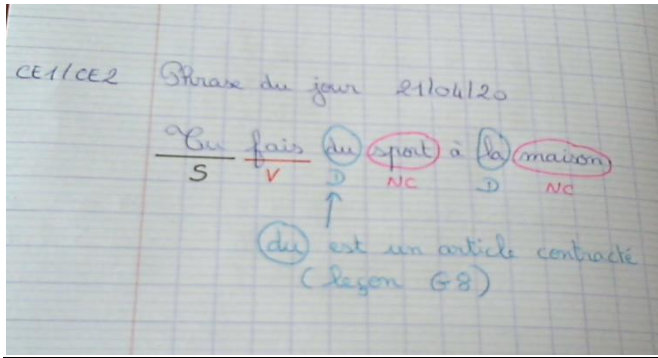 CE1/CE2 Phrase du jour 21/04/20
Tu fais du sport à la maison
S V D NC D NC
du est un article contracté
(leçon G8)